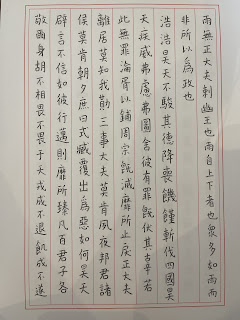 雨無正大夫刺幽王也雨自上下者也眾多如雨而
非所以為政也
浩浩昊天不駿其德降喪饑饉斬伐四國昊
天疾威弗慮弗圖舍彼有罪既伏其辜若
此無罪淪胥以鋪周宗既滅靡所止戾正大夫
離居莫知我勩三事大夫莫肯夙夜邦君諸
侯莫肯朝夕庶曰式臧覆出為惡如何昊天
辟言不信如彼行邁則靡所臻凡百君子各
敬爾身胡不相畏不畏于天戎成不退飢成不遂